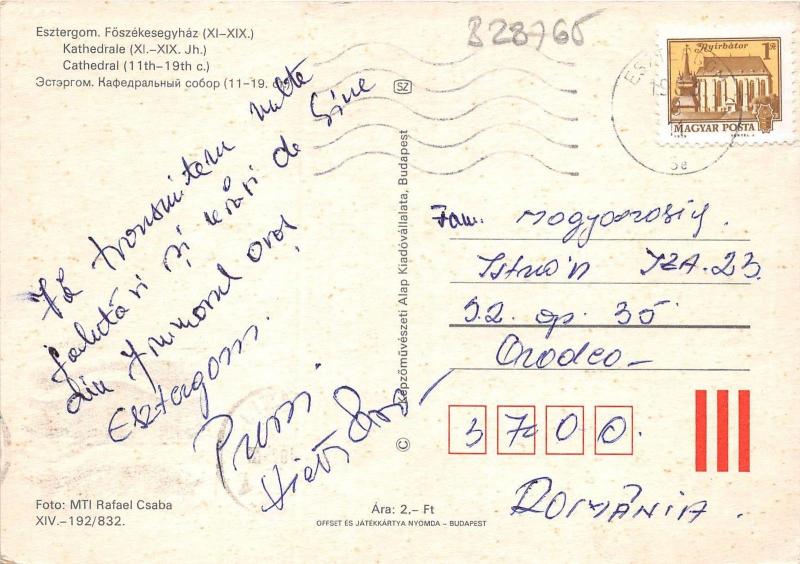 Esztergom. Főszékesegyház (XI–XIX.)
Kathedrale (XI.–XIX. Jh.)
Cathedral (11th–19th c.)
Эстэргом. Кафедральный собор (11–19.
B28765
Nyírbátor 1 Ft
MAGYAR POSTA
SZ
Vă transmitem multe
salutări și urări de bine
din frumosul oraș
Esztergom.
© Képzőművészeti Alap Kiadóvállalata, Budapest
Fam.
István IZA. 23.
S2. ap. 35
Oradea
3700.
ROMÂNIA.
Foto: MTI Rafael Csaba
XIV.–192/832.
Ára: 2,– Ft
OFFSET ÉS JÁTÉKKÁRTYA NYOMDA – BUDAPEST